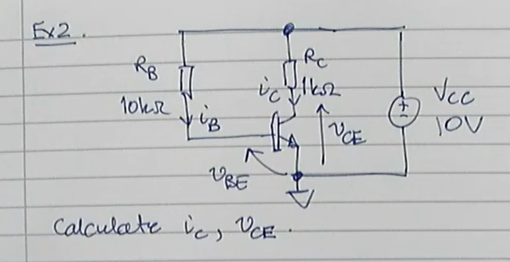 Ex2.
R_B
10kΩ
i_B
R_C
i_C
1kΩ
v_CE
v_BE
V_CC
10V
±
Calculate i_C, v_CE.